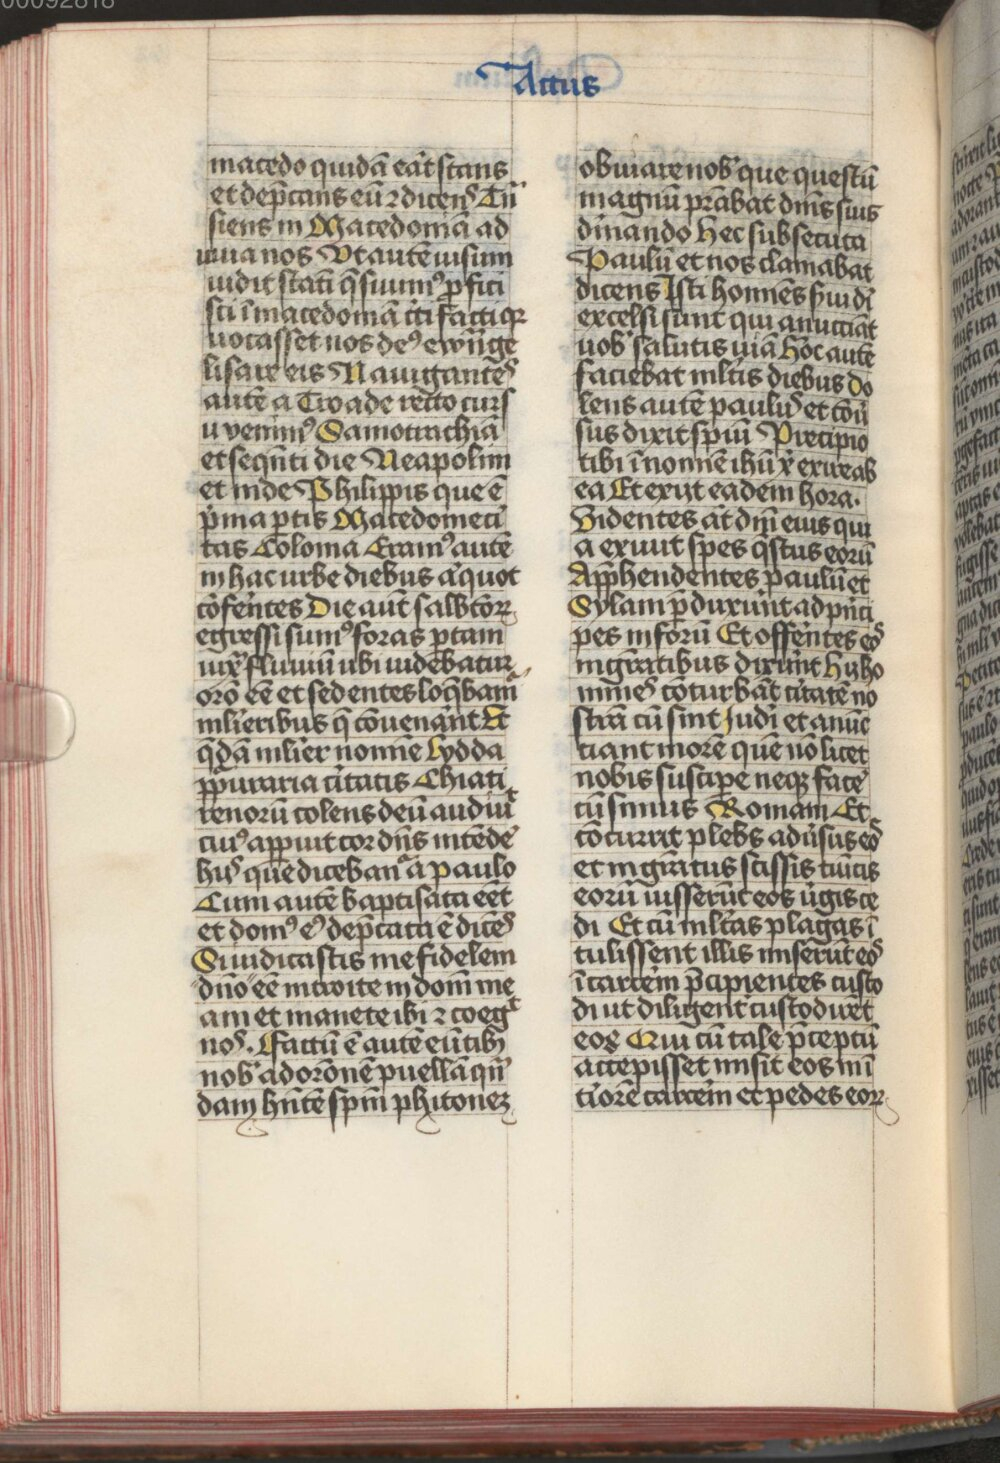 00092818
Actus
macedo quidā eāt stans
et dep̄cans eū ꝛ dicenˢ Tn̄
siens in Macedoniā ad
iuua nos Vt autē uisum
uidit statī q̄siuimꝰ ꝓfici
sci ī macedoniā c̄ti facti qꝛ
uocasset nos deꝰ ewāge
lisare eis Nauiganteˢ
autē a Troade recto curs
u venimꝰ Samotrachiā
et seqn̄ti die Neapolim
et inde Philippis que ē
p̄ma ꝑtis Macedonie ci
tas Colonia Eramꝰ autē
in hac urbe diebus aͥquot
cōfern̄tes Die aut̄ sabbtorꝝ
egressi sumꝰ foras portam
iuxͣ fluuiū ubi uidebatur
orō eē et sedentes loq̄bamͬ
mlīeribus q̄ cōuenānt Et
q̄dā mlīer nomīe Lydda
pꝑuraria cītatis Thiati
renorū colens deū audiuͭ
cuiꝰ aꝑuit cor dn̄s intēdeˀ
hiis que diceban̄ᷓ a paulo
Cum autē baptisata eēt
et domꝰ eꝰ dep̄cata ē diceˢ
Si iudicastis me fidelem
dn̄o eē introite in domū me
am et manete ibi ꝛ coegͭ
nos. Factū ē autē eūtibꝫ
nobˢ ad orōnem puellā qn̄
dam hn̄tē spm̄ phitonēꝫ
obuiare nobˢ que questū
magnū prābat dn̄is suis
diuinando Hec subsecuta
Paulū et nos clamabat
dicens Isti homines ẜui dī
excelsi sunt qui anūctiāt
uobˢ salutis uiā Hoc autē
faciebat mltīs diebus Do
lens autē pauluˢ et cōu̇
sus dixit spiuī Precipio
tibi ī nomīe ihū xp̄ exire ab
ea Et exiit eadem hora.
Videntes āt dn̄i eius qui
a exiuit spes q̄stus eorū
Appͬhendentes paulū et
Sylam ꝑduxunt ad pn̄ci
pes in forū Et offerētes eoˢ
mgrātibus dixerūt Hii ho
mineˢ cōturbāt cītatē no
strā cū sint Judī et anūc
tiant morē quē nō licet
nobis suscipe neqꝫ faceˀ
cū simus Romani Et
cōcurrit plebs adūsus eoˢ
et mgrātus scissis tunicis
eorū iusserūt eos ūgis ce
di Et cū mltās plagas ī
tulissent illis miserūt eoˢ
ī carcēm p̄cipientes custo
di ut diligentˀ custodiret
eos Qui cū tale p̄ceptū
accepisset misit eos in ī
tiorē carcēm et pedes eorꝝ